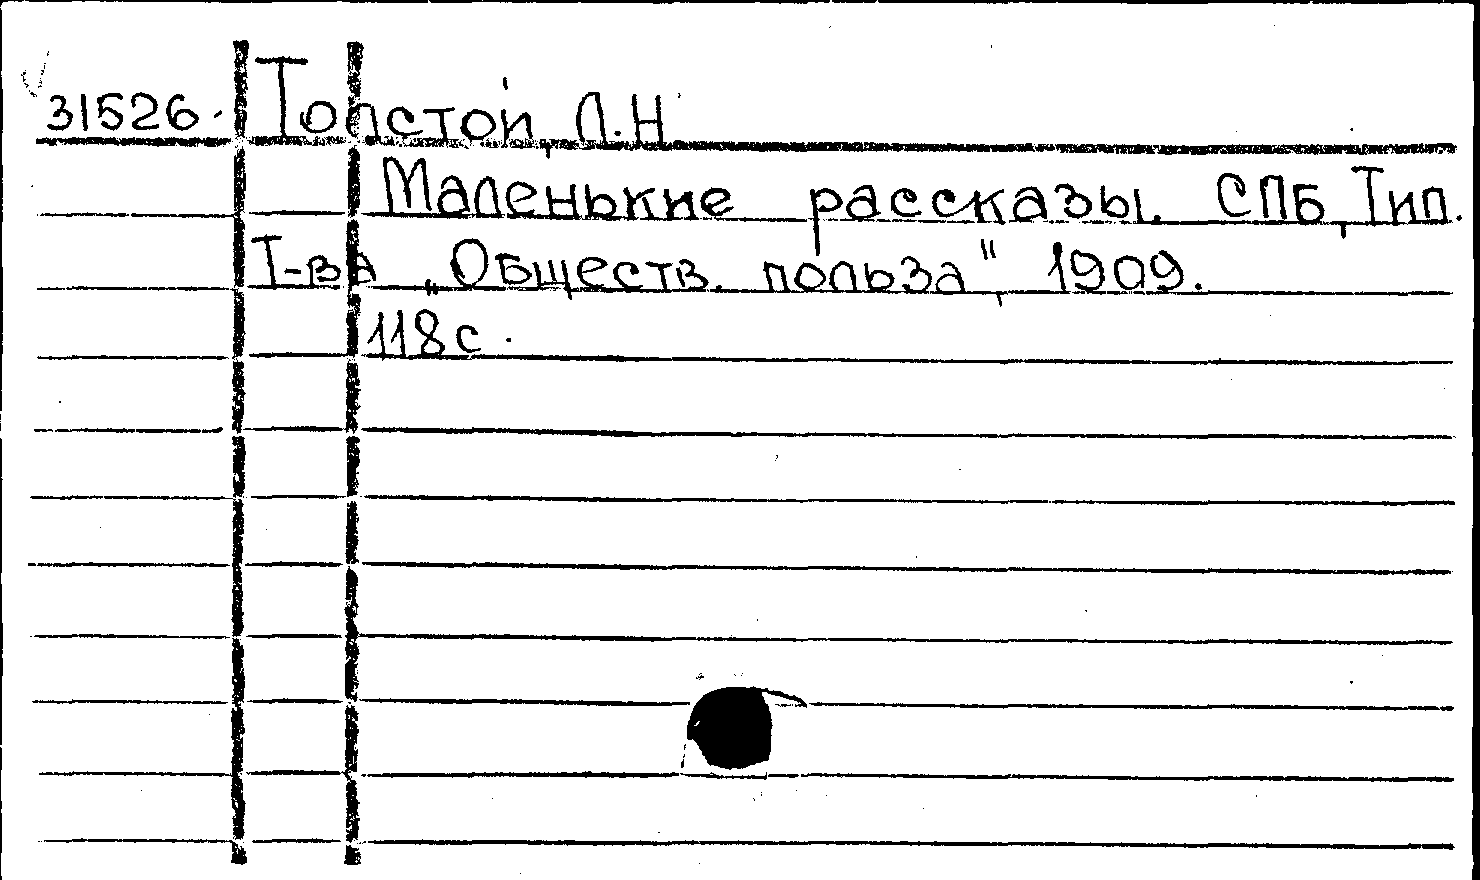 31526. Толстой, Л.Н
Маленькие рассказы. СПБ, Тип.
Т-ва „Обществ. польза", 1909.
118 с.